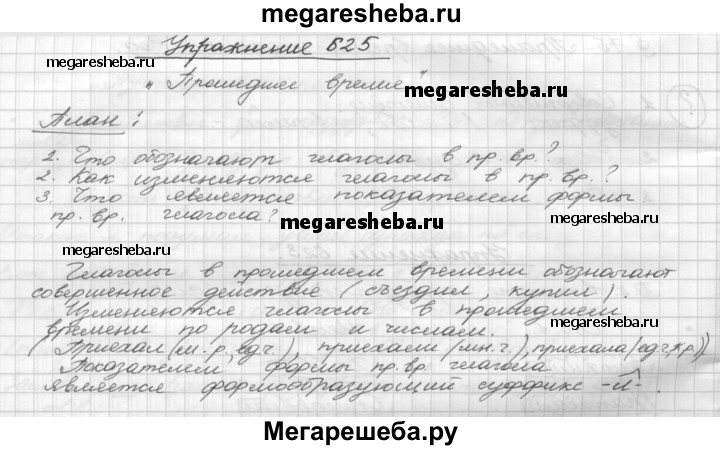 megaresheba.ru
Упражнение 625
megaresheba.ru
„Прошедшее время"
megaresheba.ru
План:
1. Что обозначают глаголы в пр. вр.?
2. Как изменяются глаголы в пр. вр.?
3. Что является показателем формы
пр. вр. глагола?
megaresheba.ru
megaresheba.ru
megaresheba.ru
Глаголы в прошедшем времени обозначают
совершенное действие (съездил, купил).
Изменяются глаголы в прошедшем
времени по родам и числам.
(Приехал (м.р., ед.ч.), приехали (мн.ч.), приехала (ед.ч, ж.р.))
Показателем формы пр. вр. глагола
является формообразующий суффикс -л-.
megaresheba.ru
megaresheba.ru
Мегарешеба.ру